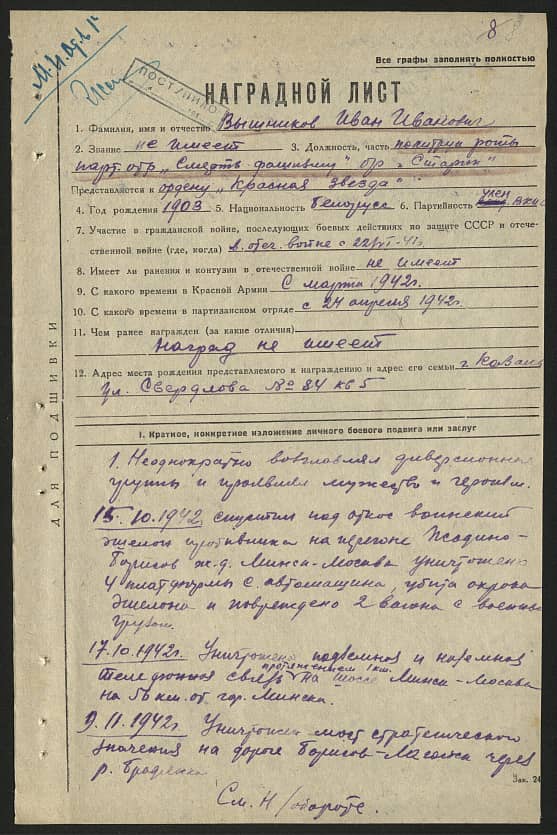 8
М.И.Отв. 1г
ПОСТУПИЛО
Все графы заполнять полностью
НАГРАДНОЙ ЛИСТ
1. Фамилия, имя и отчество Вышников Иван Иванович
2. Звание не имеет 3. Должность, часть политрук роты
парт. отр. „Смерть фашизму" отр „Старик"
Представляется к ордену „Красная звезда"
4. Год рождения 1903 5. Национальность белорусс 6. Партийность член ВКП
7. Участие в гражданской войне, последующих боевых действиях по защите СССР и отече-
ственной войне (где, когда) в отеч. войне с 22/VI-41г.
8. Имеет ли ранения и контузии в отечественной войне не имеет
9. С какого времени в Красной Армии с марта 1942г.
10. С какого времени в партизанском отряде с 24 апреля 1942г.
11. Чем ранее награжден (за какие отличия)
наград не имеет
12. Адрес места рождения представляемого к награждению и адрес его семьи г. Казань
ул. Свердлова № 84 кв 5
ДЛЯ ПОДШИВКИ
I. Краткое, конкретное изложение личного боевого подвига или заслуг
1. Неоднократно возглавлял диверсионные
группы и проявил мужество и героизм.
15.10.1942 спустил под откос воинский
эшелон противника на перегоне Жодино-
Борисов ж.д. Минск-Москва уничтожено
4 платформы с автомашина, убита охрана
эшелона и повреждено 2 вагона с военным
грузом.
17.10.1942г. Уничтожена подземная и наземная
телефонная связь протяжением 1 км. на шоссе Минск-Москва
на 56 км. от гор. Минска.
9.11.1942г. Уничтожен мост стратегического
значения на дороге Борисов-Лагойск через
р.
См. Н/обороте.
Зак. 24